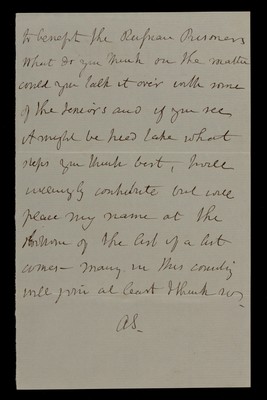 to benefit the Russian Prisoners
What do you think on the matter
could you talk it over with some
of the Seniors and if you see
it might be tried take what
steps you think best, I will
willingly contribute but will
place my name at the
bottom of the list if a list
comes - many in this country
will join at least I think so
AS.